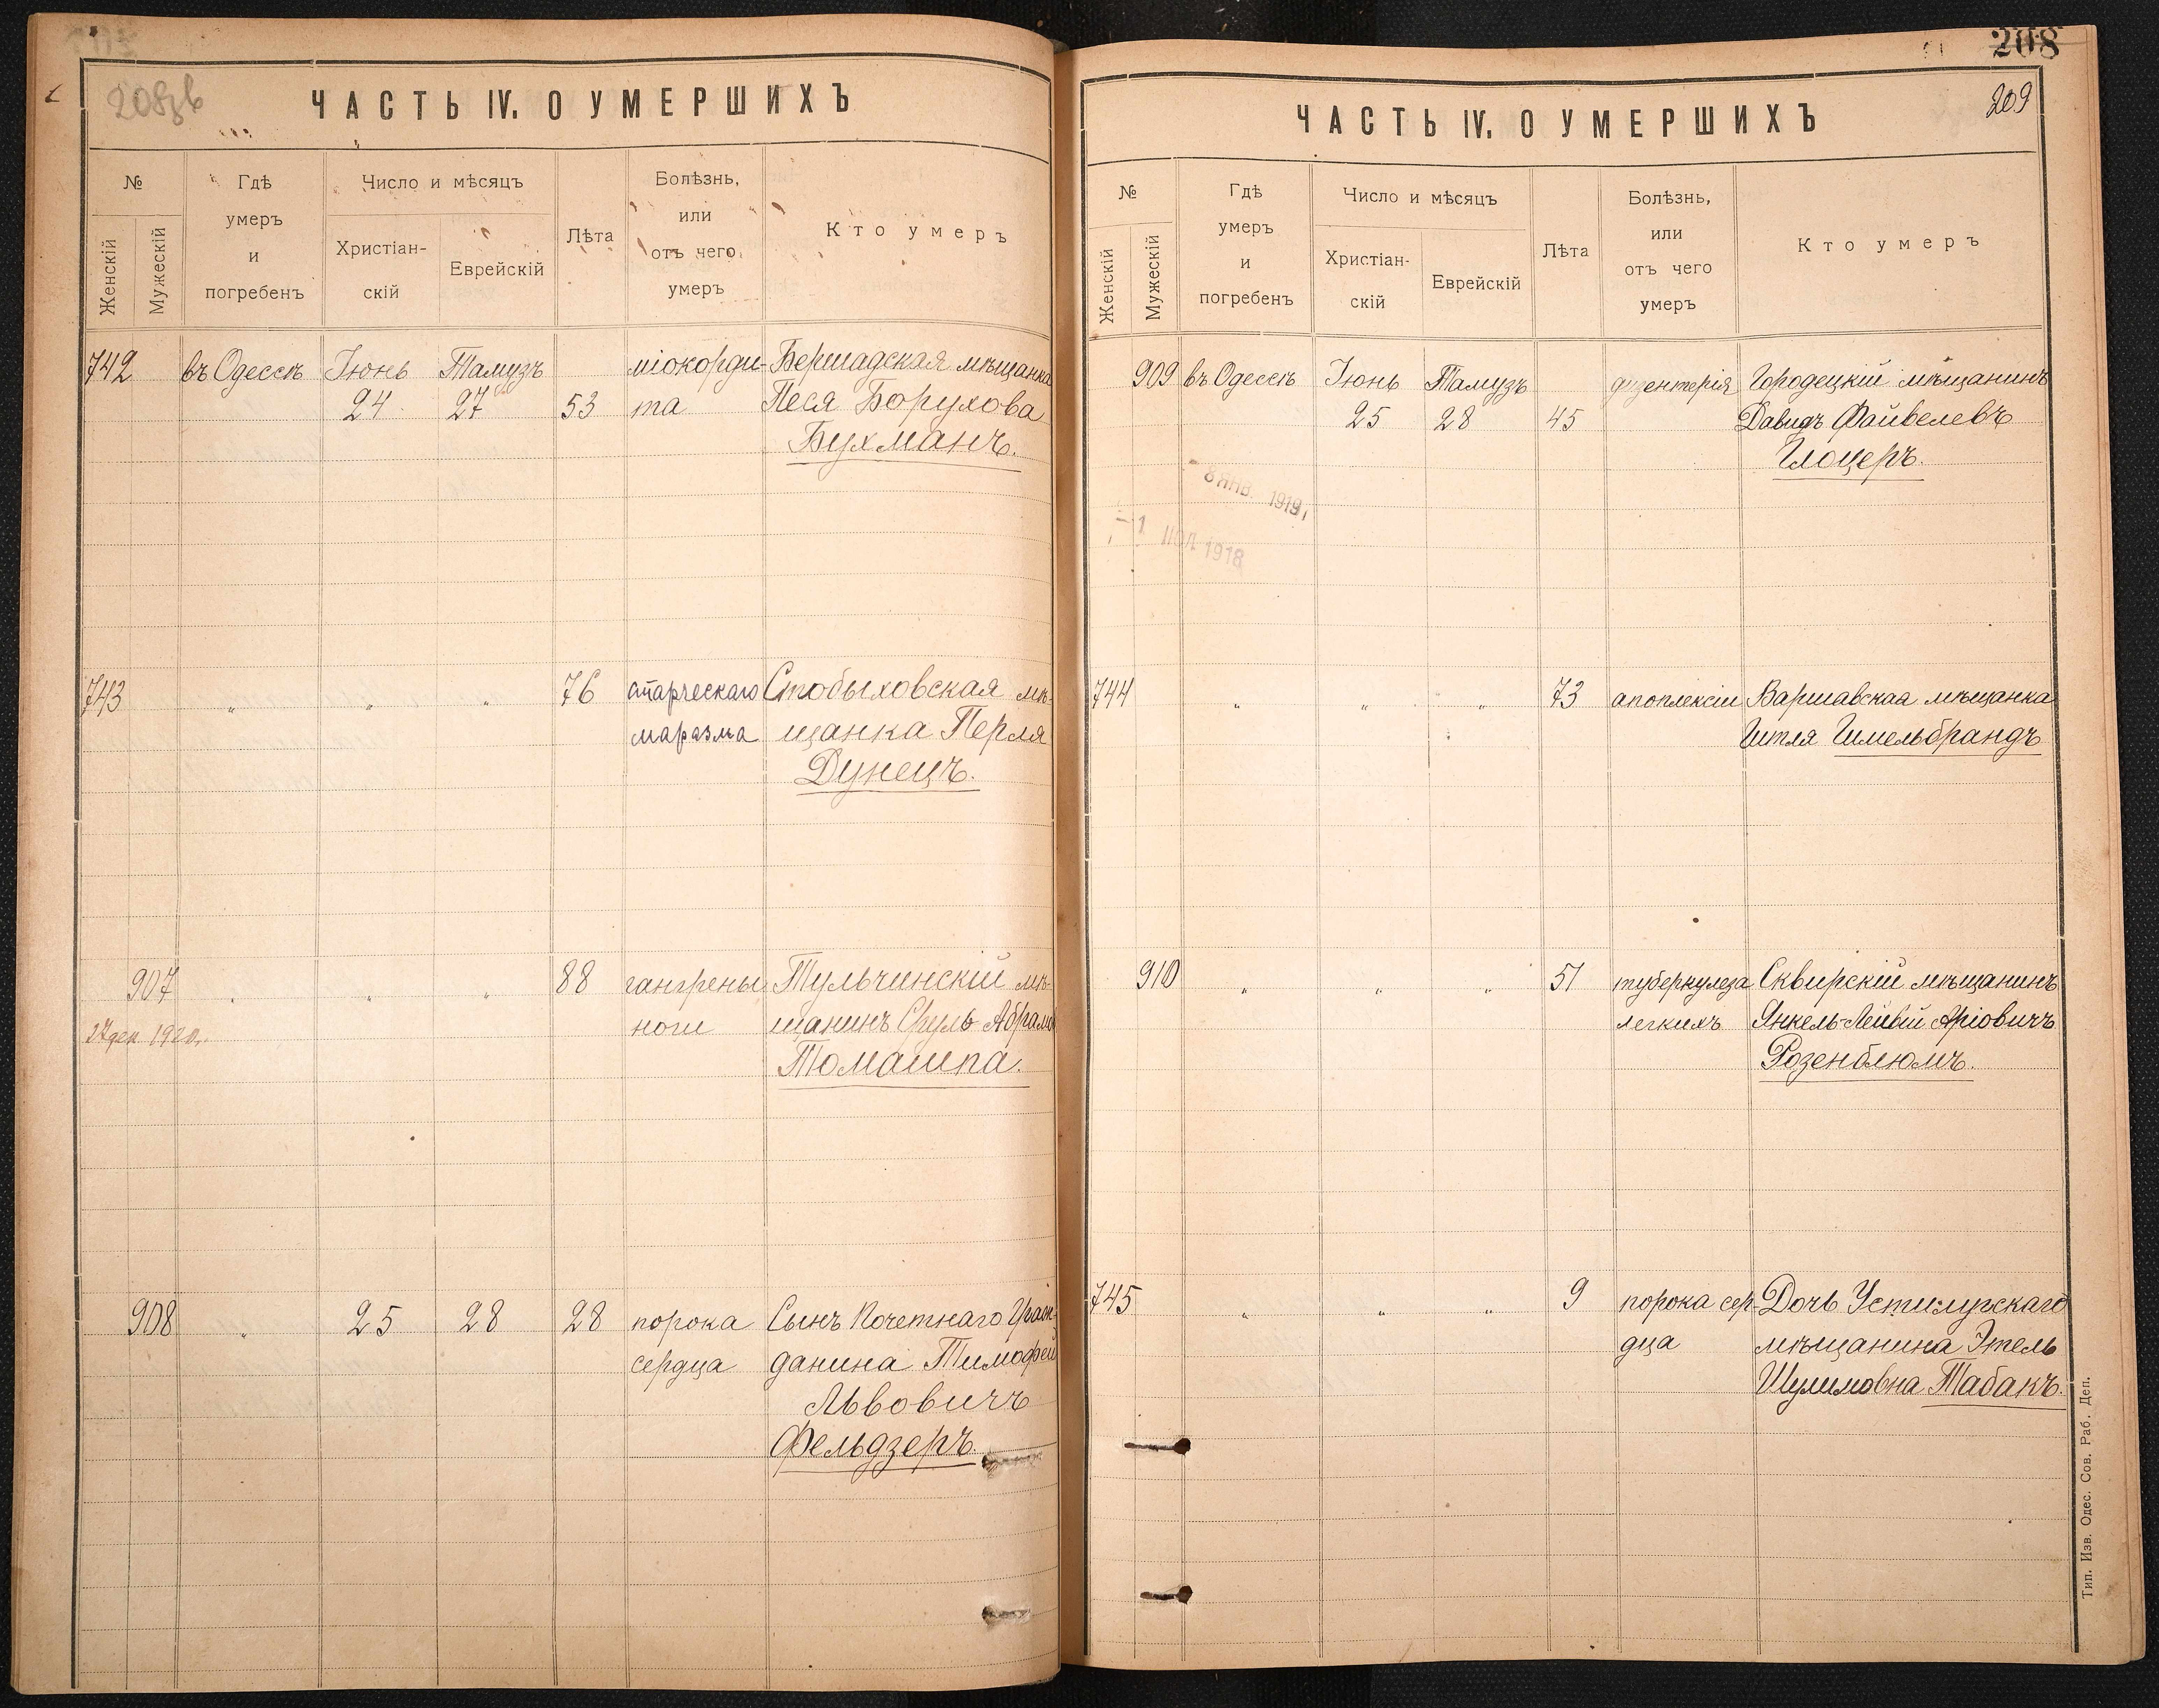 208зв
ЧАСТЬ IV. О УМЕРШИХЪ
№
Женскій
Мужескій
Гдѣ
умеръ
и
погребенъ
Число и мѣсяцъ
Христіан-
скій
Еврейскій
Лѣта
Болѣзнь,
или
отъ чего
умеръ
Кто умеръ
742 въ Одессѣ Іюнь Тамузъ міокорди- Бершадская мѣщанка
24 27 53 та Песя Борухова
Бухманъ.
743 " " " 76 старческаго Стобыховская мѣ-
маразма щанка Перля
Дунецъ.
907 " " " 88 гангрены Тульчинскій мѣ-
ноги щанинъ Сруль Абрамо
27 дек 1920 г.
Томашпа.
908 " 25 28 28 порока Сынъ Почетнаго Граж-
сердца данина Тимофей
Львовичъ
Фельдзеръ.
208
209
ЧАСТЬ IV. О УМЕРШИХЪ
№
Женскій
Мужескій
Гдѣ
умеръ
и
погребенъ
Число и мѣсяцъ
Христіан-
скій
Еврейскій
Лѣта
Болѣзнь,
или
отъ чего
умеръ
Кто умеръ
909 въ Одессѣ Іюнь Тамузъ дизентерія Городецкій мѣщанинъ
25 28 45 Давидъ Файвелевъ
Глоцеръ.
3 ЯНВ. 1919
-1 ІЮЛ 1918
744 " " " 73 апоплексіи Варшавская мѣщанка
Гитля Гимельбрандъ
910 " " " 51 туберкулеза Сквирскій мѣщанинъ
легкихъ Янкель-Лейвій Аріовичъ
Розенблюмъ.
745 " " " 9 порока сер- Дочь Устилугскаго
дца мѣщанина Этель
Шулимовна Табакъ.
Тип. Изв. Одес. Сов. Раб. Деп.